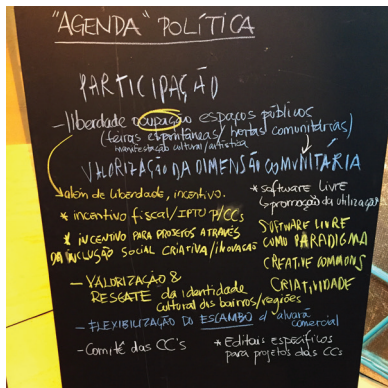 "AGENDA" POLÍTICA
PARTICIPAÇÃO
- liberdade ocupação espaços públicos
(feiras espontâneas / hortas comunitárias)
manifestação cultural/artística
VALORIZAÇÃO DA DIMENSÃO COMUNITÁRIA
além de liberdade, incentivo.
* incentivo fiscal/IPTU P/CCs
* INCENTIVO PARA PROJETOS ATRAVÉS
DA INCLUSÃO SOCIAL CRIATIVA/INOVAÇÃO
* software LIVRE
promoção da utilização
SOFTWARE LIVRE
COMO PARADIGMA
CREATIVE COMMONS
CRIATIVIDADE
- VALORIZAÇÃO &
RESGATE da identidade
cultural dos bairros/regiões
- FLEXIBILIZAÇÃO DO ESCAMBO d alvará
comercial
- Comitê das CC's
* Editais específicos
para projetos das CCs